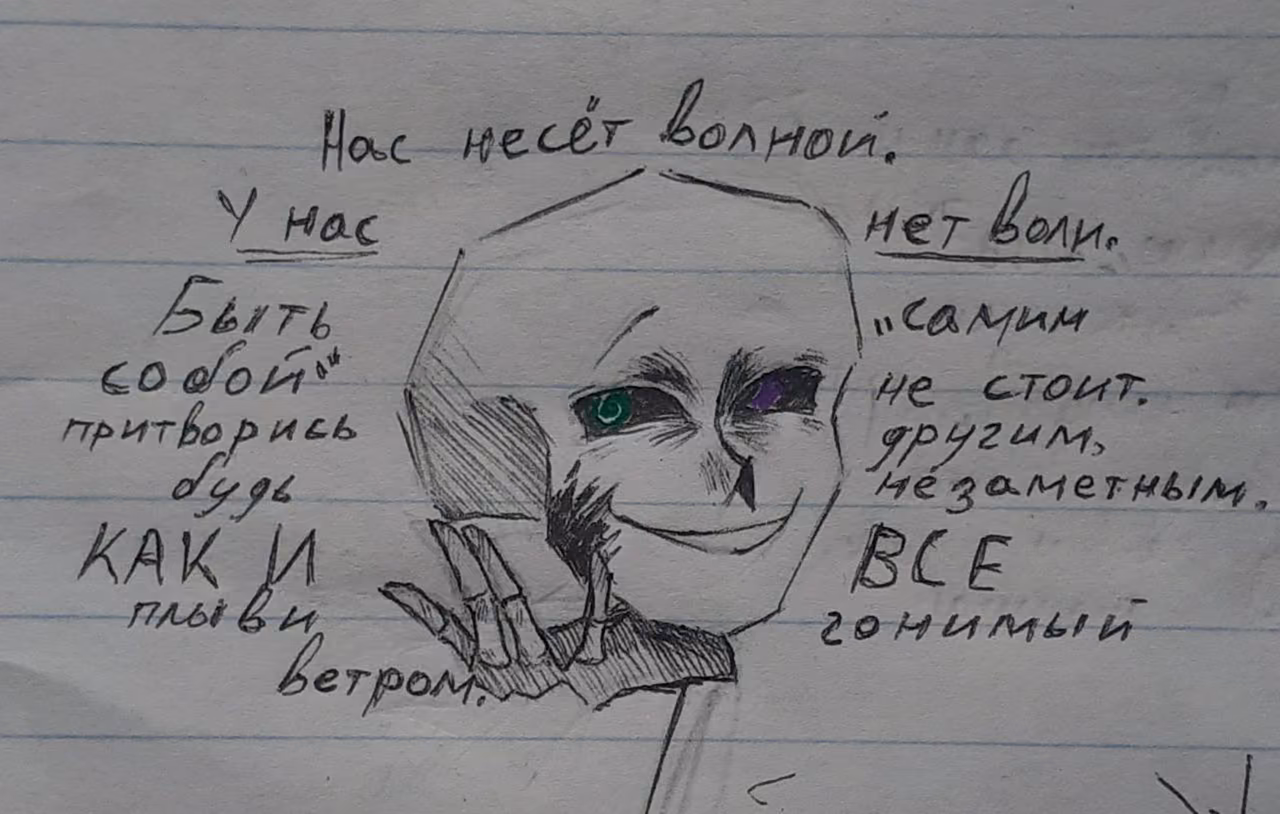 Нас несёт волной.
У нас нет воли.
Быть „самим
собой“ не стоит.
притворись другим,
будь незаметным.
КАК И ВСЕ
плыви гонимый
ветром.